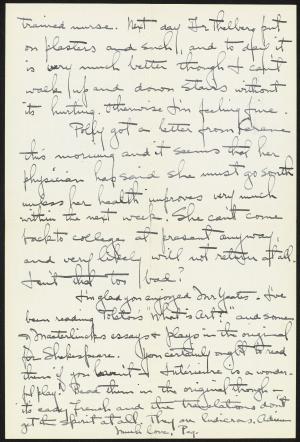 trained nurse. Next day Dr Thelberg put
on plasters and such, and to day it
is very much better though I can't
walk up and down stairs without
its hurting. Otherwise I'm feeling fine.
Polly got a letter from
this morning and it seems that her
physician has said she must go South
unless her health improves very much
within the next week. She can't come
back to college at present anyway,
and very likely will not return at all.
Isn't that too bad?
I'm glad you enjoyed Mr Yeats. I've
been reading Tolstoi's "What is Art?" and some
of Maeterlinck's essays & plays in the original
for Shakespeare. You certainly ought to read
them if you haven't. L'Intruse is a wonder-
ful play! Read them in the original though -
its easy French and the translations don't
get the spirit at all. They are ludicrous. Adieu
Much love, Peg.